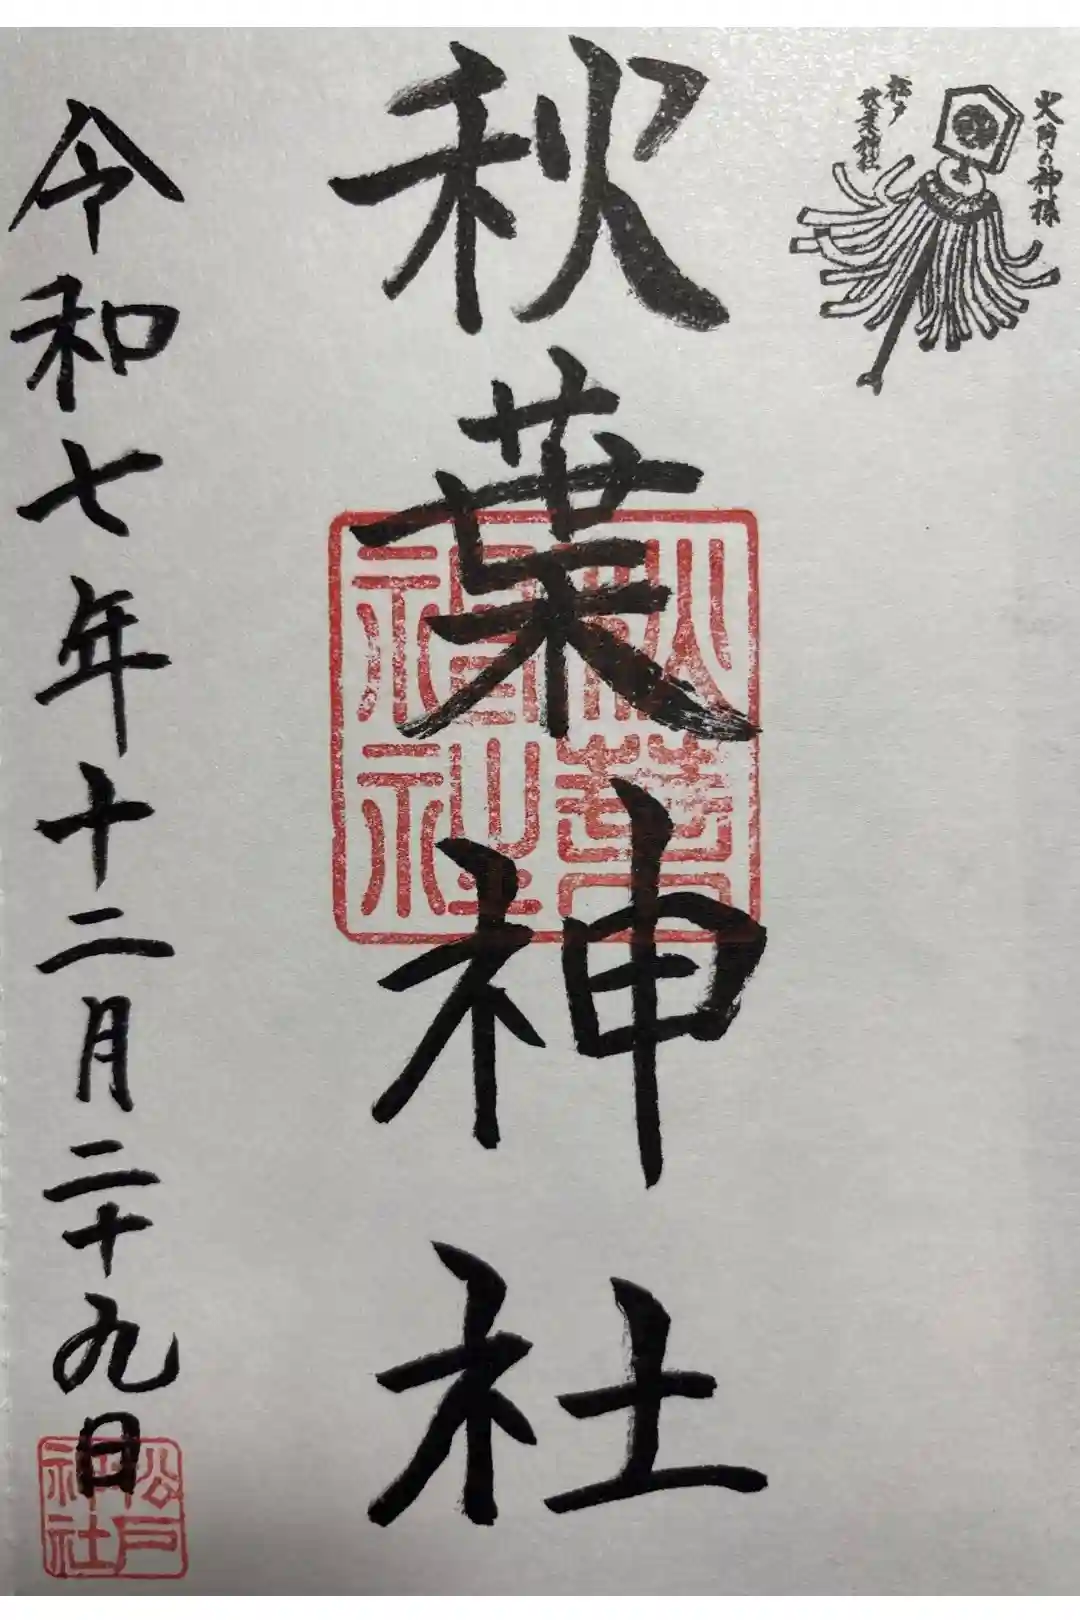 火防の神様
松戸
秋葉神社
秋葉神社
秋葉神社
令和七年十二月二十九日
松戸神社